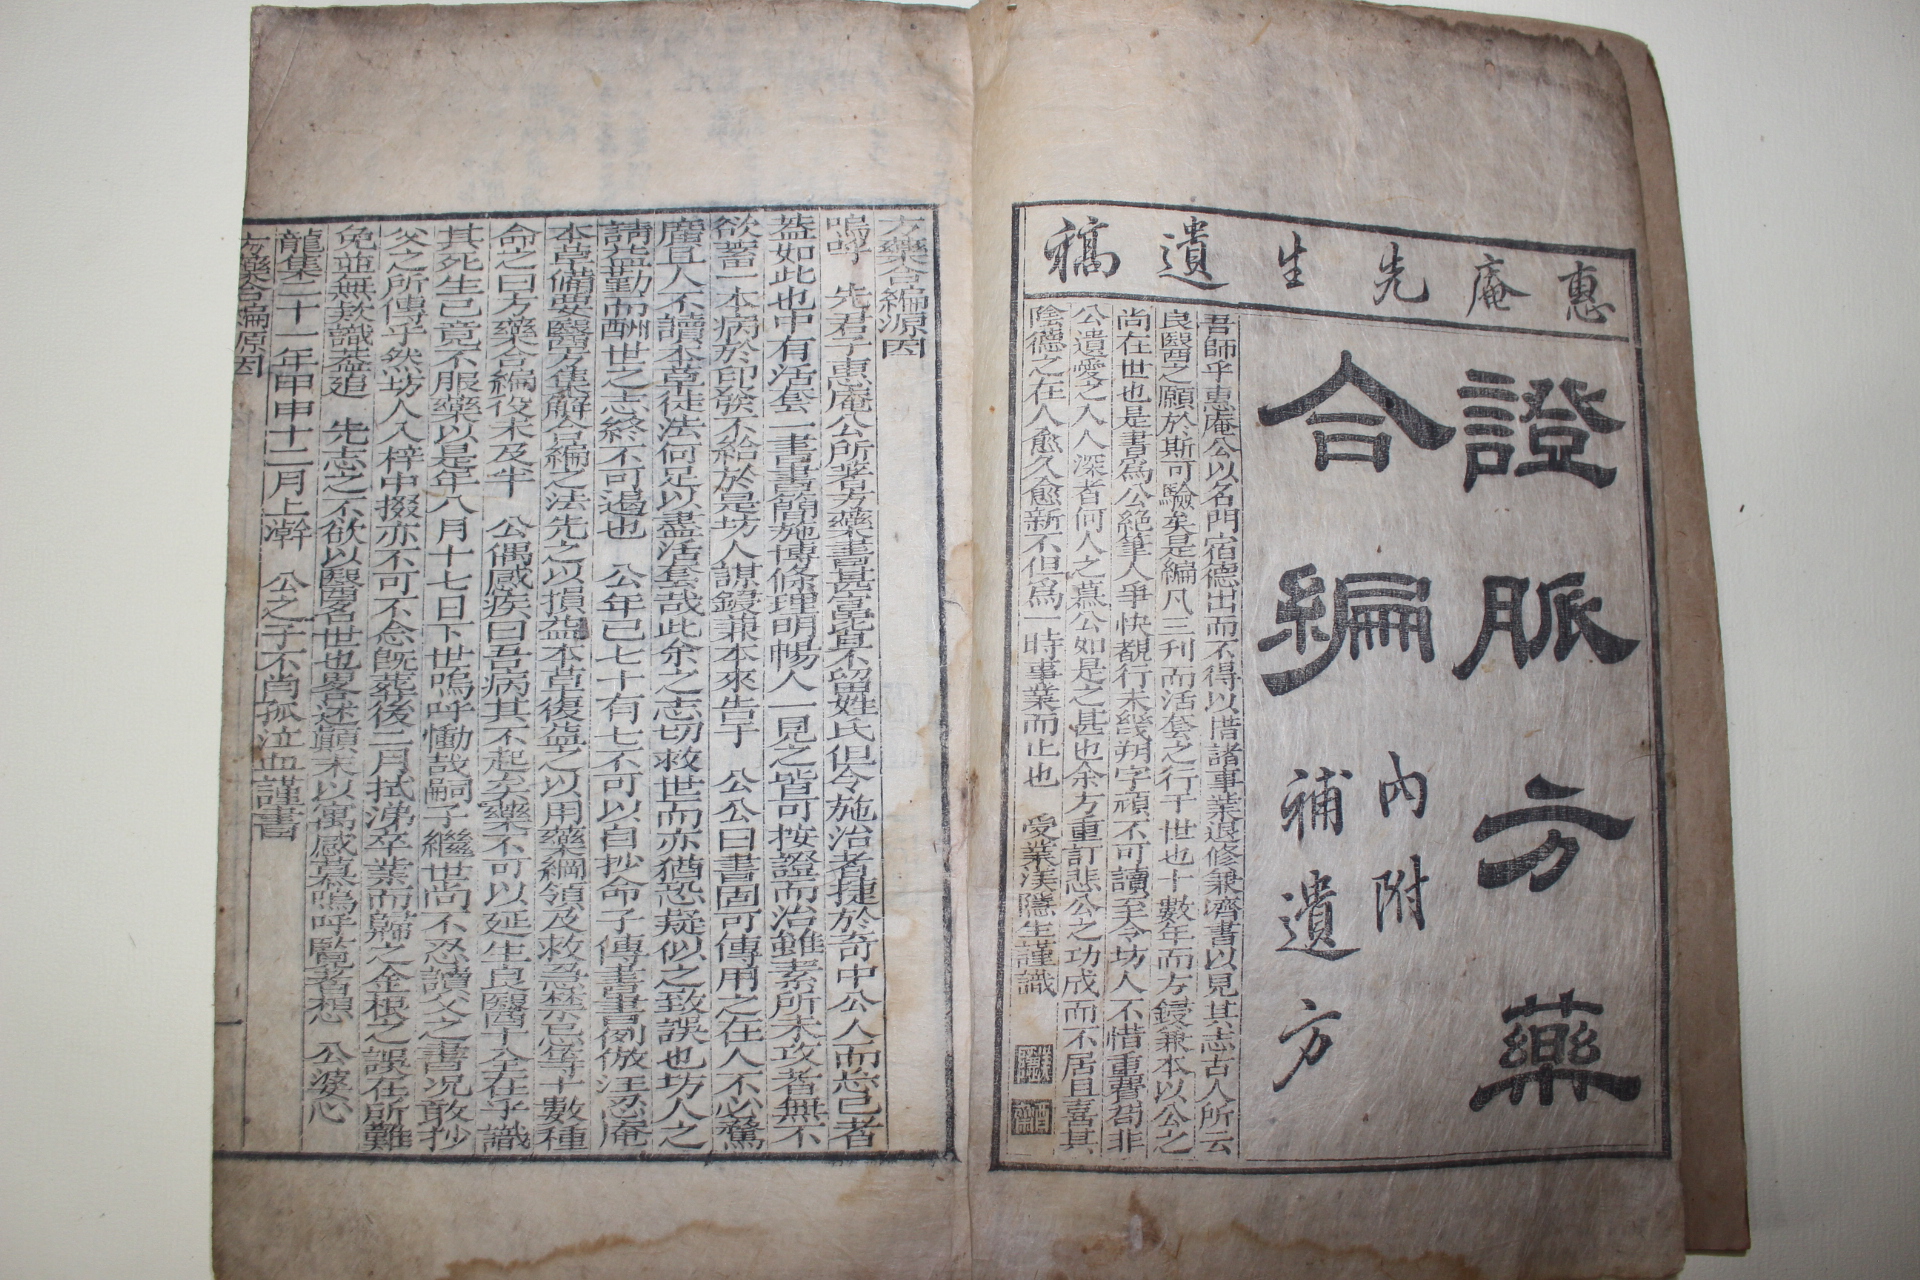 惠庵先生遺稿
證脈方藥
合編
內附
補遺方
吾師乎惠庵公以名門宿德出而不得以措諸事業退修兼濟書以見其志古人所云
良醫之願於斯可驗矣是編凡三刊而活套之行于世也十數年而方鍰兼本以公之
尚在世也是書爲公絶筆人爭快覩行未幾朔字頑不可讀至今坊人不惜重費苟非
公遺愛之入人深者何人之慕公如是之甚也余方重訂悲公之功成而不居且喜其
陰德之在人愈久愈新不但爲一時事業而止也 受業渼隱生謹識
方藥合編源因
嗚呼 先君子惠庵公所著方藥書甚富皆不留姓氏但令施治者捷於奇中公人而忘己者
盖如此也中有活套一書書簡施博條理明暢人一見之皆可按證而治雖素所未攻者無不
欲蓄一本病於印發不給於是坊人謀鋟兼本來告于 公公曰書固可傳用之在人不必驚
廣且人不讀本草徒法何足以盡活套哉此余之志切救世而亦猶恐疑似之致誤也坊人之
請益勤而酬世之志終不可遏也 公年已七十有七不可以自抄命子傳書書例倣汪忍庵
本草備要醫方集解合編之法先之以損益本草復益之以用藥綱領及救急禁忌等十數種
命之曰方藥合編役未及半 公偶感疾曰吾病其不起矣藥不可以延生良醫十全在乎識
其死生已竟不服藥以是年八月十七日下世嗚呼慟哉嗣子繼世尚不忍讀父之書况敢抄
父之所傳乎然坊人入梓中掇亦不可不念旣葬後二月拭涕卒業而歸之金根之誤在所難
免並無欺識盖追 先志之不欲以醫名世也畧述顚末以寓感慕嗚呼覽者想 公婆心
龍集二十一年甲申十二月上澣 公之子不肖孤泣血謹書
方藥合編源因
一